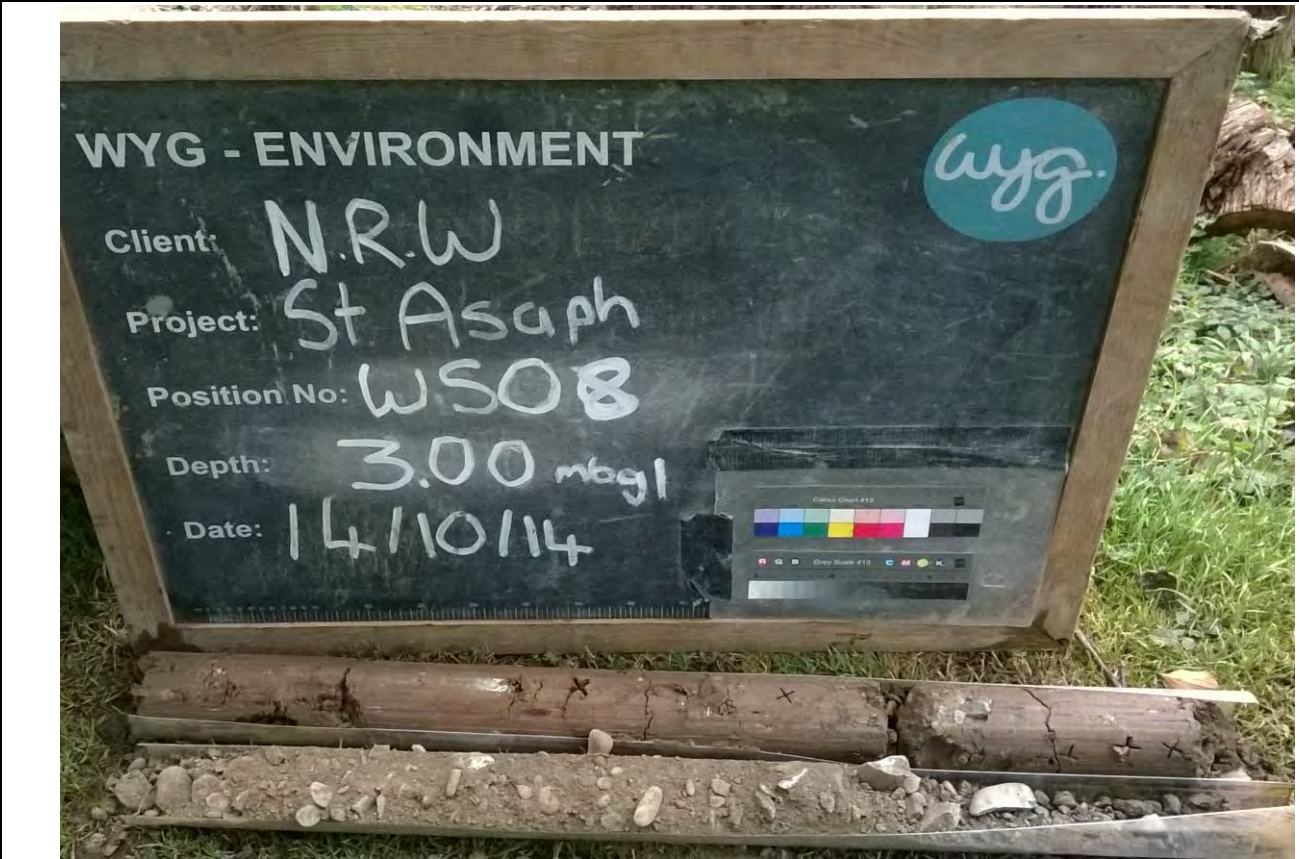 WYG - ENVIRONMENT
wyg.
Client: N.R.W
Project: St Asaph
Position No: WS08
Depth: 3.00 mbgl
Date: 14/10/14
Colour Chart #13
R G B Grey Scale #13 C M Y K